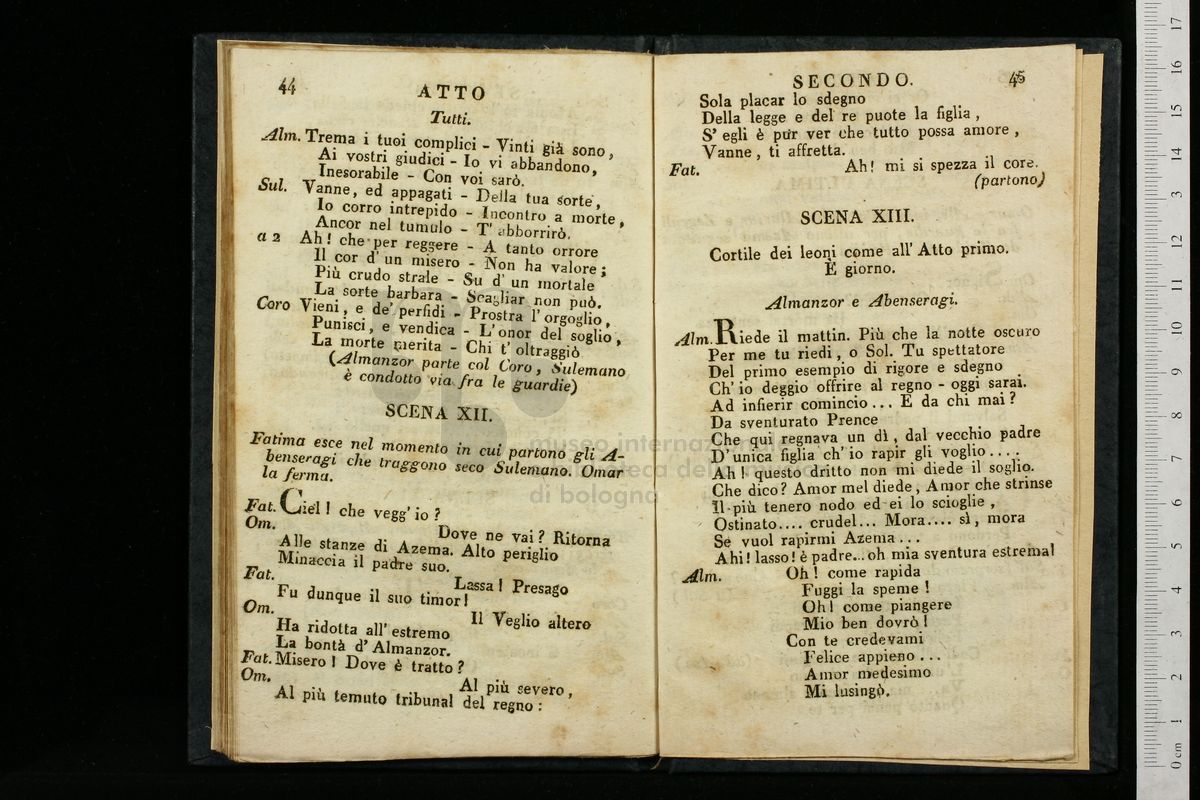 44
ATTO
Tutti.
Alm. Trema i tuoi complici - Vinti già sono,
Ai vostri giudici - Io vi abbandono,
Inesorabile - Con voi sarò.
Sul. Vanne, ed appagati - Della tua sorte,
Io corro intrepido - Incontro a morte,
Ancor nel tumulo - T' abborrirò.
a 2 Ah! che per reggere - A tanto orrore
Il cor d' un misero - Non ha valore;
Più crudo strale - Su d' un mortale
La sorte barbara - Scagliar non può.
Coro Vieni, e de' perfidi - Prostra l' orgoglio,
Punisci, e vendica - L' onor del soglio,
La morte merita - Chi t' oltraggiò
(Almanzor parte col Coro, Sulemano
è condotto via fra le guardie)
SCENA XII.
Fatima esce nel momento in cui partono gli A-
benseragi che traggono seco Sulemano. Omar
la ferma.
Fat. Ciel! che vegg' io?
Om. Dove ne vai? Ritorna
Alle stanze di Azema. Alto periglio
Minaccia il padre suo.
Fat. Lassa! Presago
Fu dunque il suo timor!
Om. Il Veglio altero
Ha ridotta all' estremo
La bontà d' Almanzor.
Fat. Misero! Dove è tratto?
Om. Al più severo,
Al più temuto tribunal del regno:
SECONDO.
45
Sola placar lo sdegno
Della legge e del re puote la figlia,
S' egli è pur ver che tutto possa amore,
Vanne, ti affretta.
Fat. Ah! mi si spezza il core.
(partono)
SCENA XIII.
Cortile dei leoni come all' Atto primo.
È giorno.
Almanzor e Abenseragi.
Alm. Riede il mattin. Più che la notte oscuro
Per me tu riedi, o Sol. Tu spettatore
Del primo esempio di rigore e sdegno
Ch' io deggio offrire al regno - oggi sarai.
Ad infierir comincio... E da chi mai?
Da sventurato Prence
Che qui regnava un dì, dal vecchio padre
D' unica figlia ch' io rapir gli voglio....
Ah! questo dritto non mi diede il soglio.
Che dico? Amor mel diede, Amor che strinse
Il più tenero nodo ed ei lo scioglie,
Ostinato.... crudel... Mora.... sì, mora
Se vuol rapirmi Azema...
Ahi! lasso! è padre...oh mia sventura estrema!
Alm. Oh! come rapida
Fuggi la speme!
Oh! come piangere
Mio ben dovrò!
Con te credevami
Felice appieno...
Amor medesimo
Mi lusingò.
museo internazionale
e biblioteca della musica
di bologna
0 cm 1 2 3 4 5 6 7 8 9 10 11 12 13 14 15 16 17